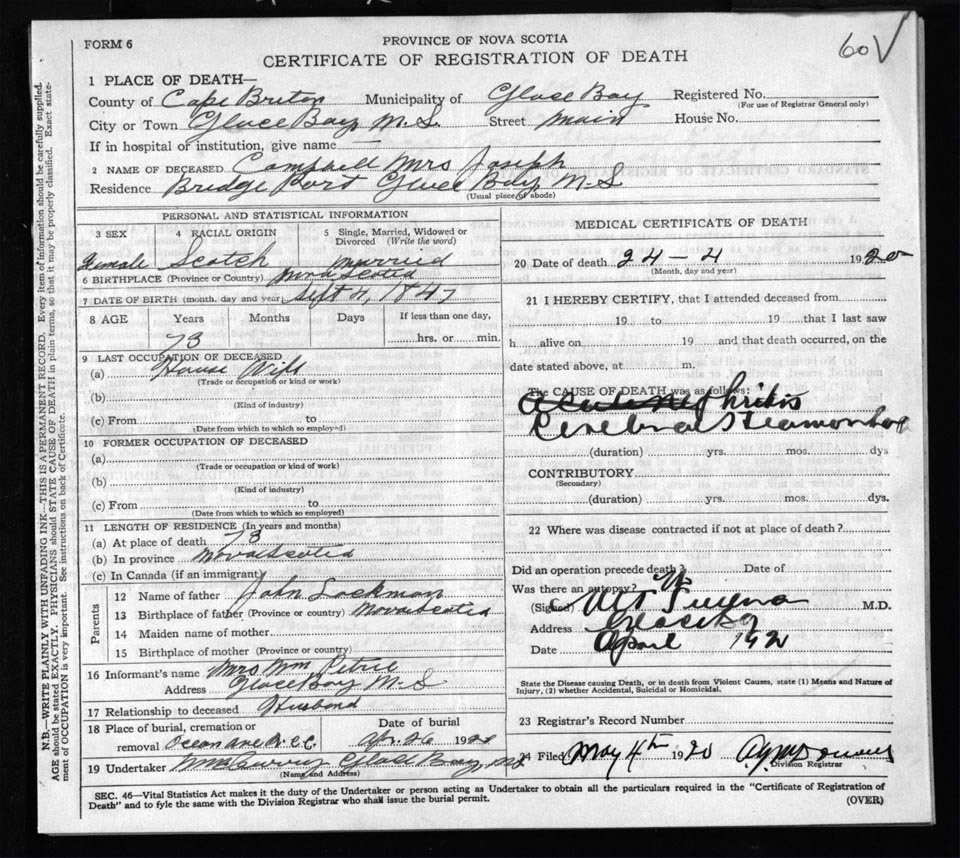 60 V
FORM 6
PROVINCE OF NOVA SCOTIA
CERTIFICATE OF REGISTRATION OF DEATH
1 PLACE OF DEATH—
County of Cape Breton Municipality of Glace Bay Registered No.
(For use of Registrar General only)
City or Town Glace Bay, N.S. Street Main House No.
If in hospital of institution, give name —
2 NAME OF DECEASED Campbell Mrs Joseph
Residence Bridge Port Glace Bay, N-S
(Usual place of abode)
PERSONAL AND STATISTICAL INFORMATION
3 SEX 4 RACIAL ORIGIN 5 Single, Married, Widowed or Divorced (Write the word)
Female Scotch Married
6 BIRTHPLACE (Province or Country) Nova Scotia
7 DATE OF BIRTH (month, day and year) Sept 4, 1847
8 AGE Years Months Days If less than one day,
73 hrs. or min.
9 LAST OCCUPATION OF DECEASED
(a) House Wife
(Trade or occupation or kind or work)
(b)
(Kind of industry)
(c) From to
(Date from which to which so employed)
10 FORMER OCCUPATION OF DECEASED
(a)
(Trade or occupation or kind of work)
(b)
(Kind of industry)
(c) From to
(Date from which to which so employed)
11 LENGTH OF RESIDENCE (In years and months)
(a) At place of death 73
(b) In province Nova Scotia
(c) In Canada (if an immigrant)
Parents
12 Name of father John Lockman
13 Birthplace of father (Province or country) Nova Scotia
14 Maiden name of mother
15 Birthplace of mother (Province or country)
16 Informant's name Mrs Wm Petrie
Address Glace Bay N-S
17 Relationship to deceased Husband
18 Place of burial, cremation or removal Date of burial
Apr. 26 1920
19 Undertaker Glace Bay, NS
(Name and Address)
MEDICAL CERTIFICATE OF DEATH
20 Date of death 24 – 4 1920
(Month, day and year)
21 I HEREBY CERTIFY, that I attended deceased from
19 to 19 that I last saw
h alive on 19 and that death occurred, on the
date stated above, at m.
The CAUSE OF DEATH was as follows:
Acute Nephritis
Cerebral Heamorrhage
(duration) yrs. mos. dys
CONTRIBUTORY
(Secondary)
(duration) yrs. mos. dys.
22 Where was disease contracted if not at place of death?
Did an operation precede death? Date of
Was there an autopsy? No
(Signed) M.D.
Address Glace Bay
Date April 192
State the Disease causing Death, or in death from Violent Causes, state (1) Means and Nature of
Injury, (2) whether Accidental, Suicidal or Homicidal.
23 Registrar's Record Number
24 Filed May 4th 1920
Division Registrar
SEC. 46—Vital Statistics Act makes it the duty of the Undertaker or person acting as Undertaker to obtain all the particulars required in the "Certificate of Registration of
Death" and to fyle the same with the Division Registrar who shall issue the burial permit.
(OVER)
N.B.—WRITE PLAINLY WITH UNFADING INK—THIS IS A PERMANENT RECORD. Every item of information should be carefully supplied.
AGE should be stated EXACTLY. PHYSICIANS should STATE CAUSE OF DEATH in plain terms, so that it may be properly classified. Exact state-
ment of OCCUPATION is very important. See instructions on back of Certificate.